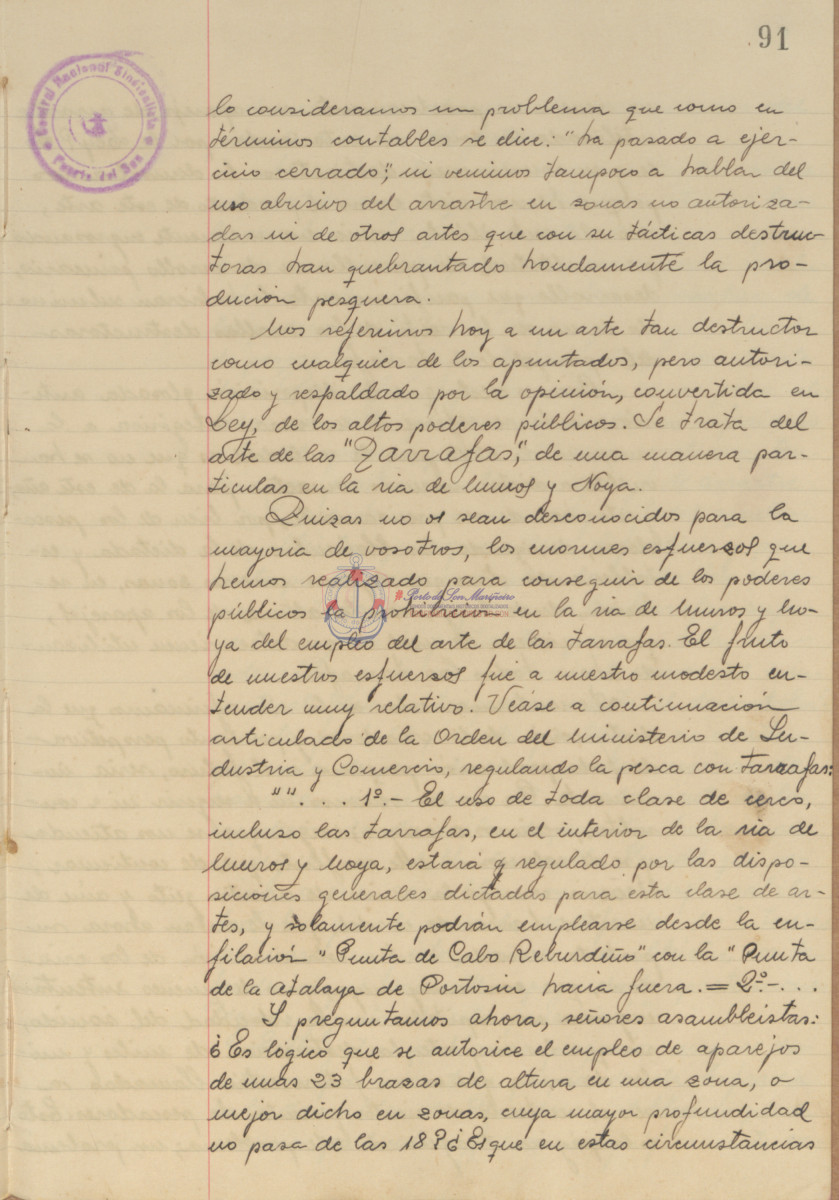 91
Central Nacional Sindicalista
Puerto del Son
lo consideramos un problema que como en
términos contables se dice: "ha pasado a ejer-
cicio cerrado", ni venimos tampoco a hablar del
uso abusivo del arrastre en zonas no autoriza-
das ni de otros artes que con su tácticas destruc-
toras han quebrantado hondamente la pro-
dución pesquera.
Nos referimos hoy a un arte tan destructor
como cualquier de los apuntados, pero autori-
zado y respaldado por la opinión, convertida en
Ley, de los altos poderes públicos. Se trata del
arte de las "Tarrafas", de una manera par-
ticular en la ria de Muros y Noya.
Quizas no os sean desconocidos para la
mayoria de vosotros, los enormes esfuerzos que
hemos realizado para conseguir de los poderes
públicos la prohibición en la ria de Muros y No-
ya del empleo del arte de las tarrafas. El fruto
de nuestros esfuerzos fué a nuestro modesto en-
tender muy relativo. Veáse a continuación
articulado de la Orden del Ministerio de In-
dustria y Comercio, regulando la pesca con tarrafas:
"" . . . 1º.- El uso de toda clase de cerco,
incluso las tarrafas, en el interior de la ria de
Muros y Noya, estará y regulado por las dispo-
siciones generales dictadas para esta clase de ar-
tes, y solamente podrán emplearse desde la en-
filación "Punta de Cabo Reburdiño" con la "Punta
de la Atalaya de Portosin hacia fuera. = 2º.- . . .
Y preguntamos ahora, señores asambleistas:
¿Es lógico que se autorice el empleo de aparejos
de unas 23 brazas de altura en una zona, o
mejor dicho en zonas, cuya mayor profundidad
no pasa de las 18? ¿Es que en estas circunstancias
Porto do Son Mariñeiro